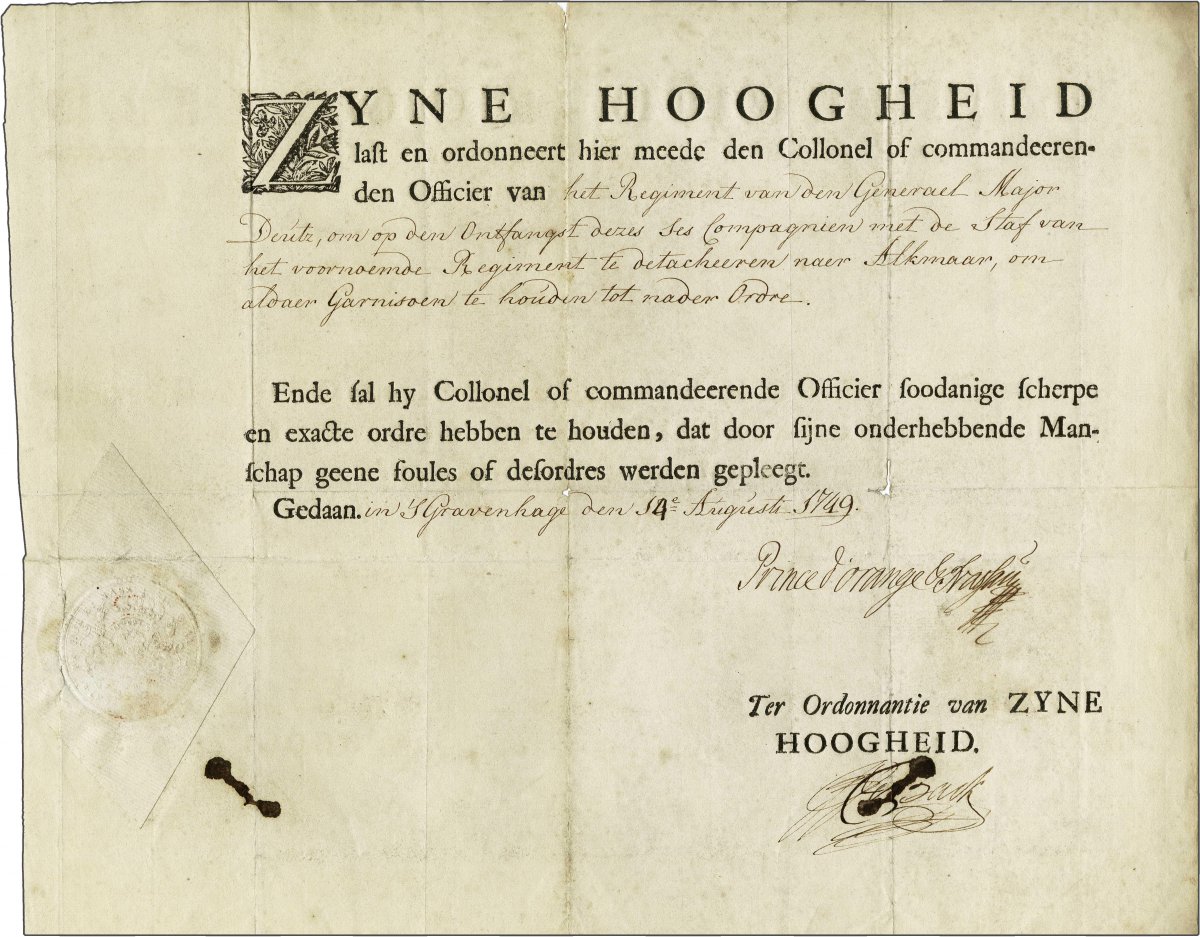 ZYNE HOOGHEID
laſt en ordonneert hier meede den Collonel of commandeeren-
den Officier van het Regiment van den Generael Major
Deutz, om op den Ontfangst dezes Ses Compagnien met de Staf van
het voornoemde Regiment te detacheeren naer Alkmaar, om
aldaer Garnisoen te houden tot nader Ordre.
Ende ſal hy Collonel of commandeerende Officier ſoodanige ſcherpe
en exacte ordre hebben te houden, dat door ſijne onderhebbende Man-
ſchap geene foules of deſordres werden gepleegt.
Gedaan. in 'S Gravenhage den 14e Augusti 1749.
Prince d'orange &
Ter Ordonnantie van ZYNE
HOOGHEID.